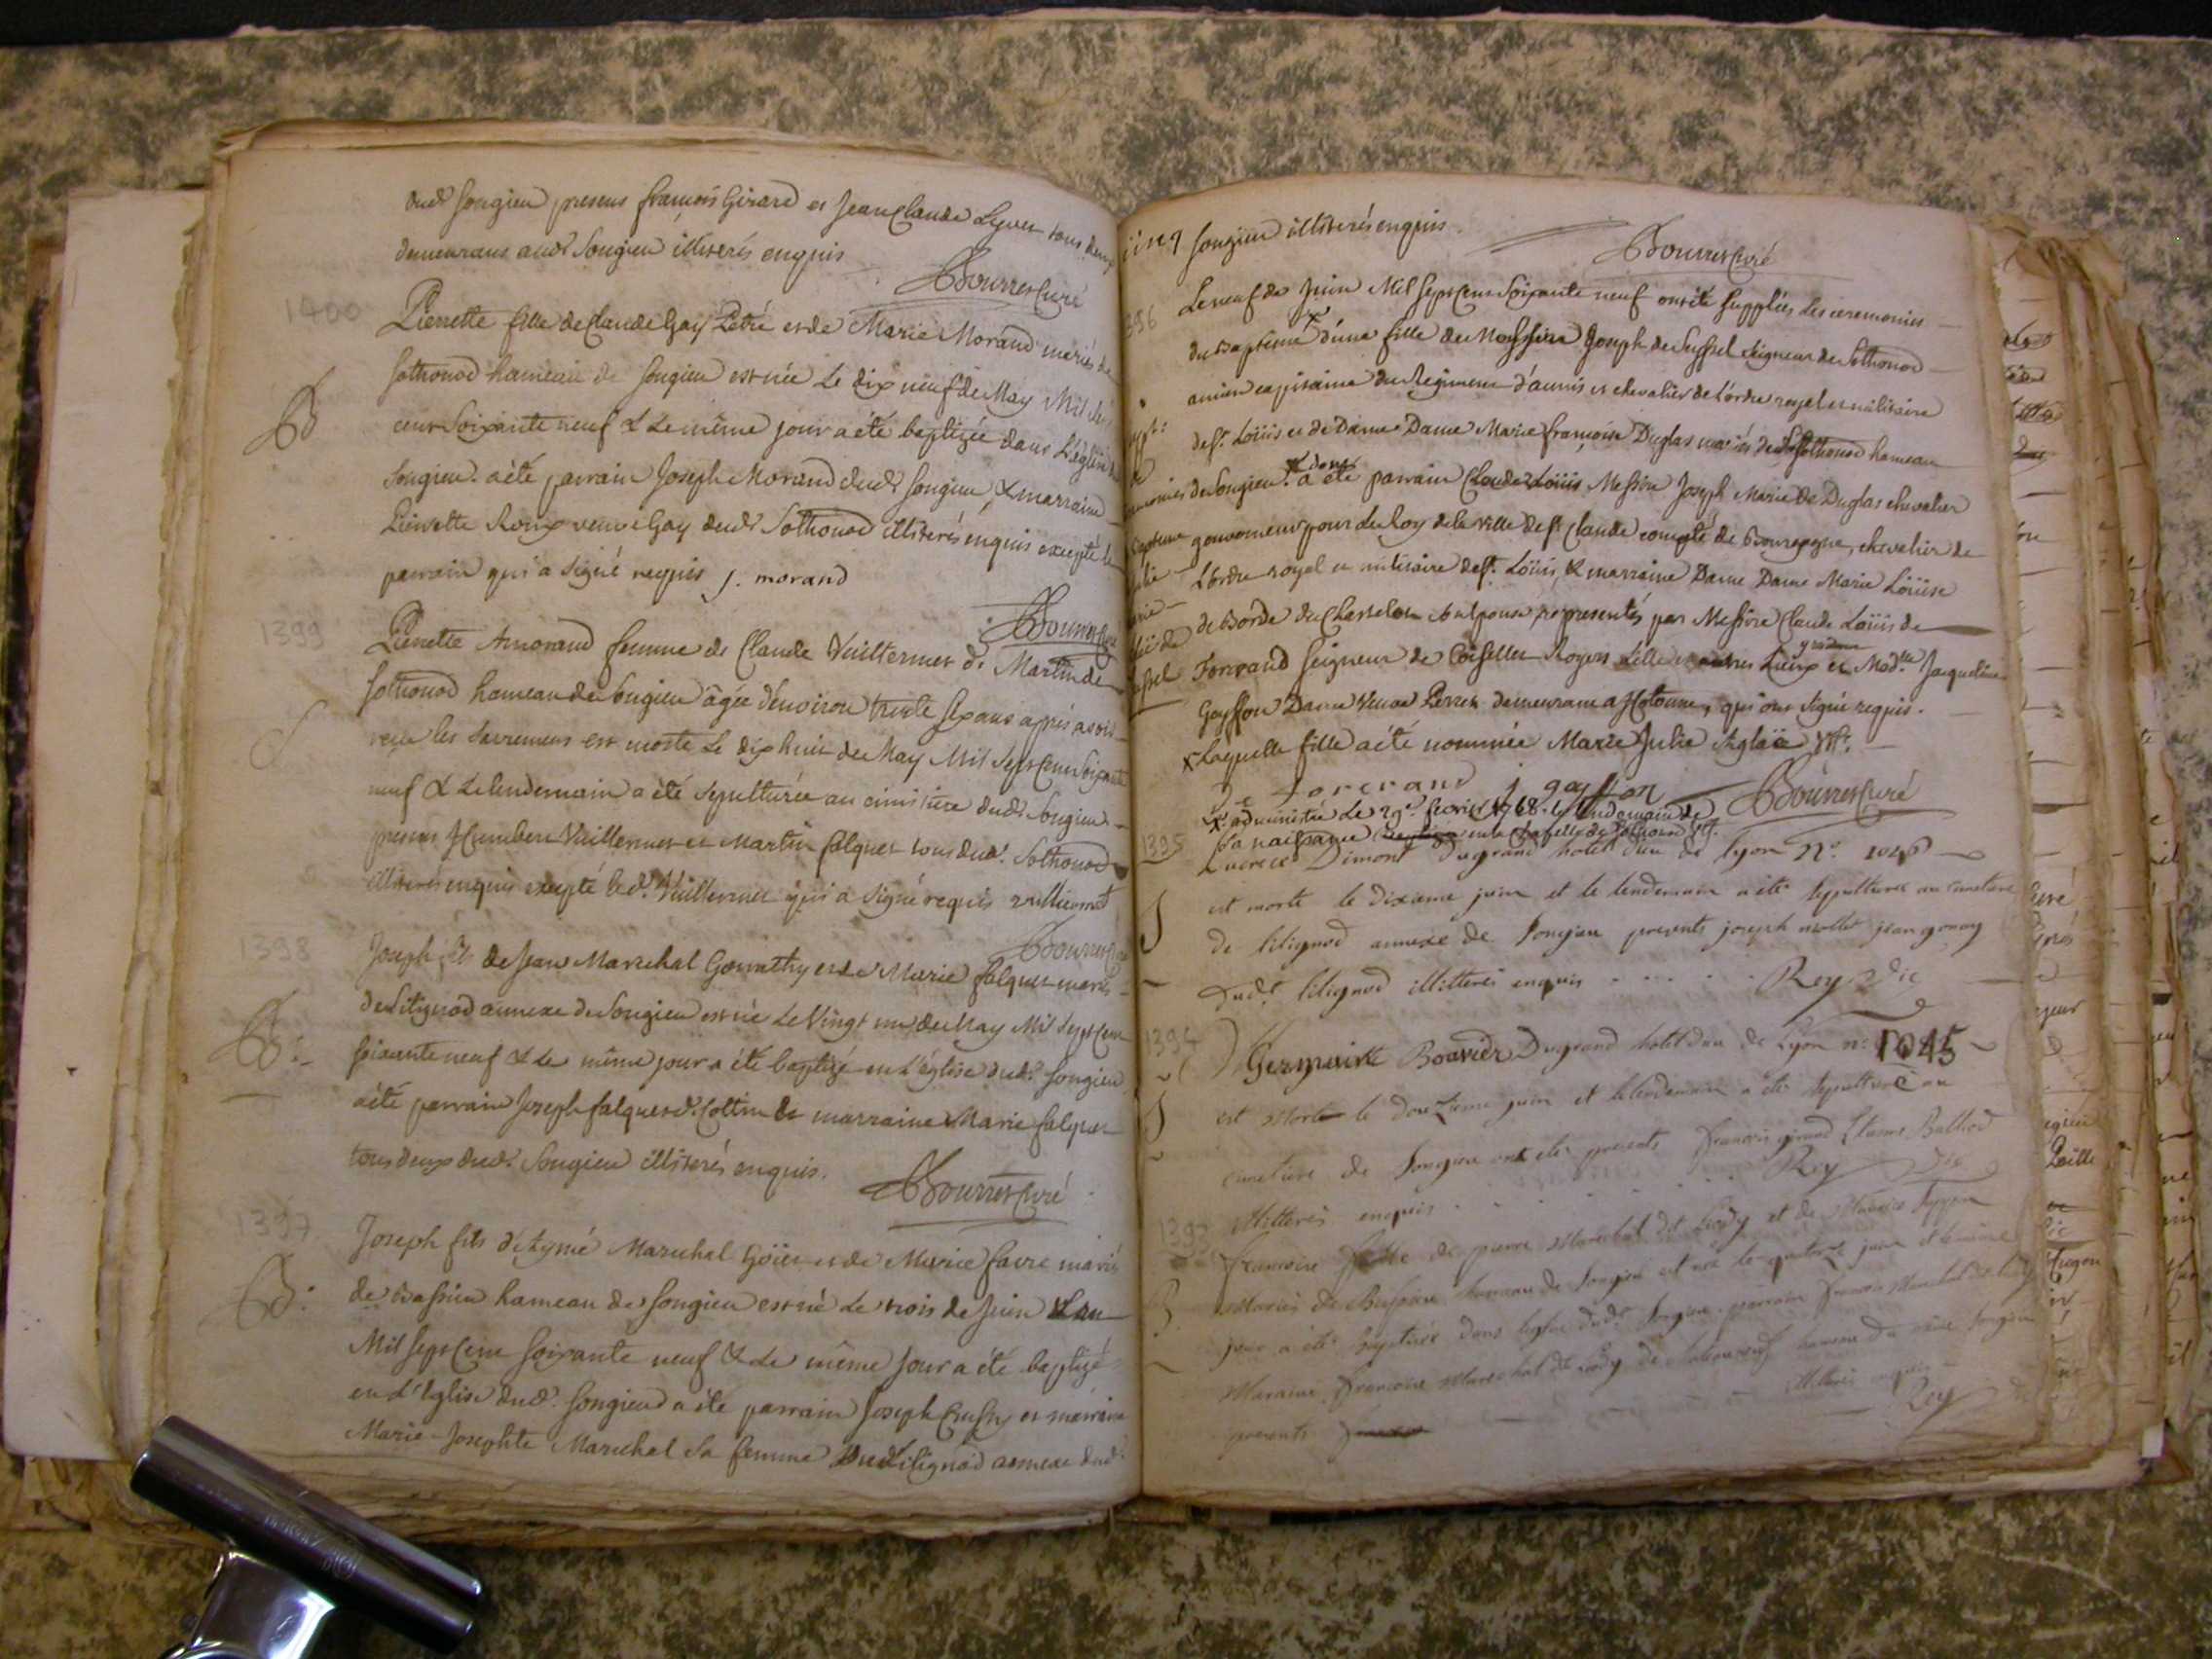 dud. Songieu presens francois Girard et Jean Claude Lyvet tous deux
demeurans aud. Songieu illiterés enquis
Bourret Curé
1400
Pierrette fille de Claude Gay Petré et de Marie Morand mariés de
Sothonod hameau de Songieu est née Le dix neuf de May Mil Sept
B
cent Soixante neuf & Le même jour a été baptizée dans L'église de
Songieu. a été parrain Joseph Morand dud. Songieu, & marraine
Pierrette Roux veuve Gay dud. Sothonod illiterés enquis excepté le
parrain qui a signé requis J. morand
Bourret Curé
1399
Pierrette Anorand femme de Claude Vuillermet dt Martin de
Sothonod hameau de Songieu agée d'environ trente six ans après avoir
S
reçu les Sacremens est morte Le dix huit de May Mil Sept Cent Soixante
neuf & Le lendemain a été Sepulturée au cimistere dud. Songieu
presens Humbert Vuillermet et Martin falquet tous dud. Sothonod
illiterés enquis excepté led. Vuillermet qui a signé requis vulliermet
Bourret Curé
1398
Joseph fils de Jean Marechal et de Marie falquet mariés
de Litignod annexe de Songieu est né Le Vingt un de May Mil Sept Cent
B.
soixante neuf & Le même jour a été baptizé en L'église dud. Songieu
a été parrain Joseph falquet d. Cottin & marraine Marie falquet
tous deux dud. Songieu illiterés enquis.
Bourret Curé
1397
Joseph fils d'Aymé Marechal Goïet et de Marie favre mariés
B.
de Bassieu hameau de Songieu est né Le trois de Juin L'an
Mil Sept Cent Soixante neuf & Le même Jour a été baptizé
en L'Eglise dud. Songieu a été parrain Joseph et marraine
Marie-Josephte Marechal Sa femme Litignod annexe dud.
Songieu illiterés enquis.
Bourret Curé
1396
Le neuf de Juin Mil Sept Cent Soixante neuf ont été Supplées Les ceremonies
du Bapteme x d'une fille de Messire Joseph de Seyssel Seigneur de Sothonod
ancien capitaine du Regiment d'aunis et chevalier de L'ordre royal et militaire
de St. Loüis et de Dame Dame Marie françoise Duglas mariés de Sothonod hameau
de Songieu. a été parrain Claude Loüis Messire Joseph Marie de Duglas chevalier
gouverneur pour Le Roy de la Ville de St. Claude compté de Bourgogne, chevalier de
L'ordre royal et militaire de St. Loüis, & marraine Dame Dame Marie Loüise
de Borde du Chastelet representés par Messire Claude Loüis de
Forcrand Seigneur de Coiselet Lieux et Mad.lle Jacqueline
Gayffon Dame Veuve Perret demeurant a Hotonne, qui ont signé requis.
x Laquelle fille a été nommée Marie Julie Aglaïe
De forcrand j gayffon
Bourret Curé
x administré Le 29e fevrier 1768. le lendemain de
sa naissance en la Chapelle de Sothonod
1395
Lucrece Dimont du grand hotel dieu de lyon N°. 1046
S
est morte le dixieme juin et le lendemain a été sepulturée au cimetiere
de litignod annexe de Songieu presents joseph mollet jean
dudt. litignod illitterés enquis Rey vic
1394
Germaine Bouvier Du grand hotel dieu de Lyon n°. 1045
S
est Morte le douzieme juin et le lendemain a été sepulturée au
cimetiere de Songieu ont été presents francois girard Etienne Balliod
illitterés enquis Rey vic
1393
francoise fille de pierre Marechal dit et de
B.
Mariés de Bassieu hameau de Songieu est née le quatorze juin et le même
jour a été baptisée dans leglise dudt. Songieu parrain francois Marechal
Maraine francoise Marechal de hameau Songieu
presents illiterés enquis
Rey